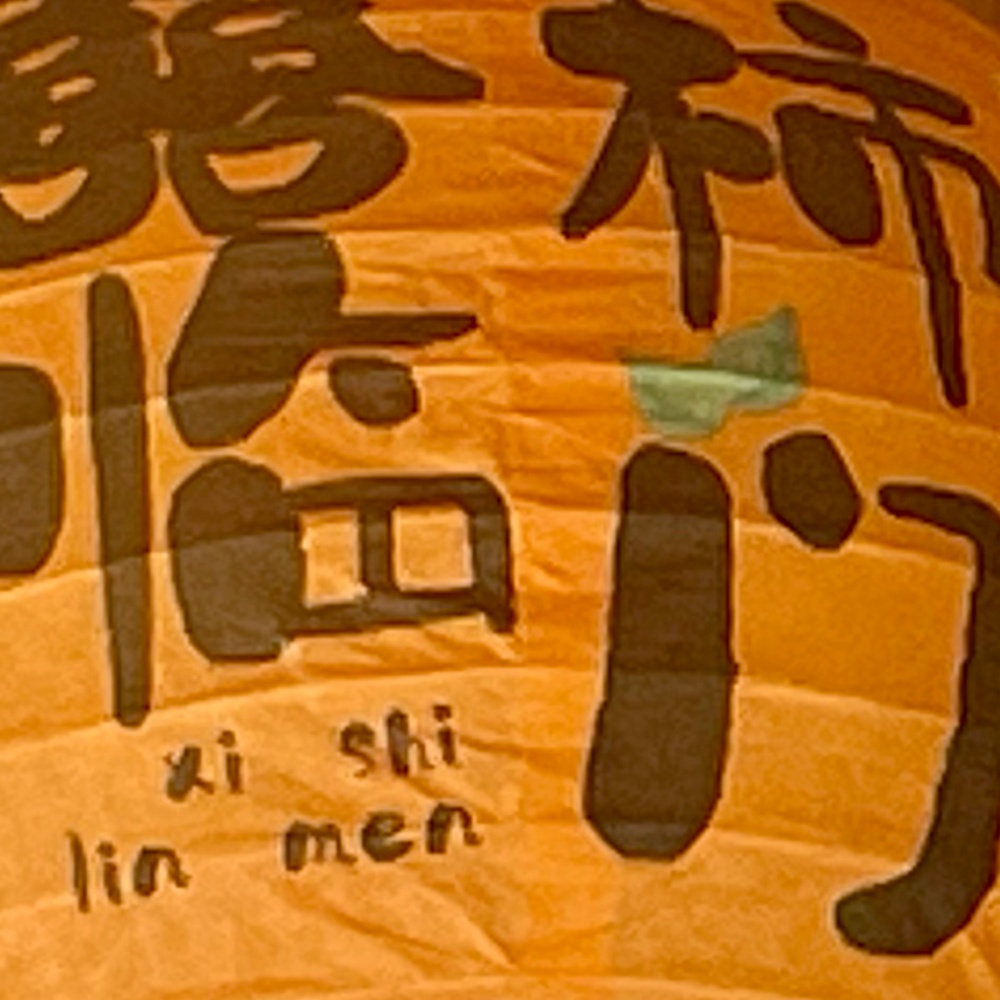 囍柿
临门
xi shi
lin men